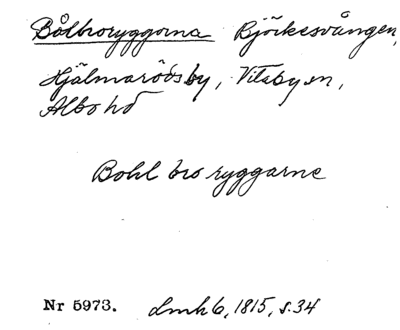 Bålbroryggorna Björkesvången,
Hjälmarödsby, Vitaby sn,
Albo hd
Bohl bro ryggarne
Nr 5973. Lmh 6, 1815, s. 34